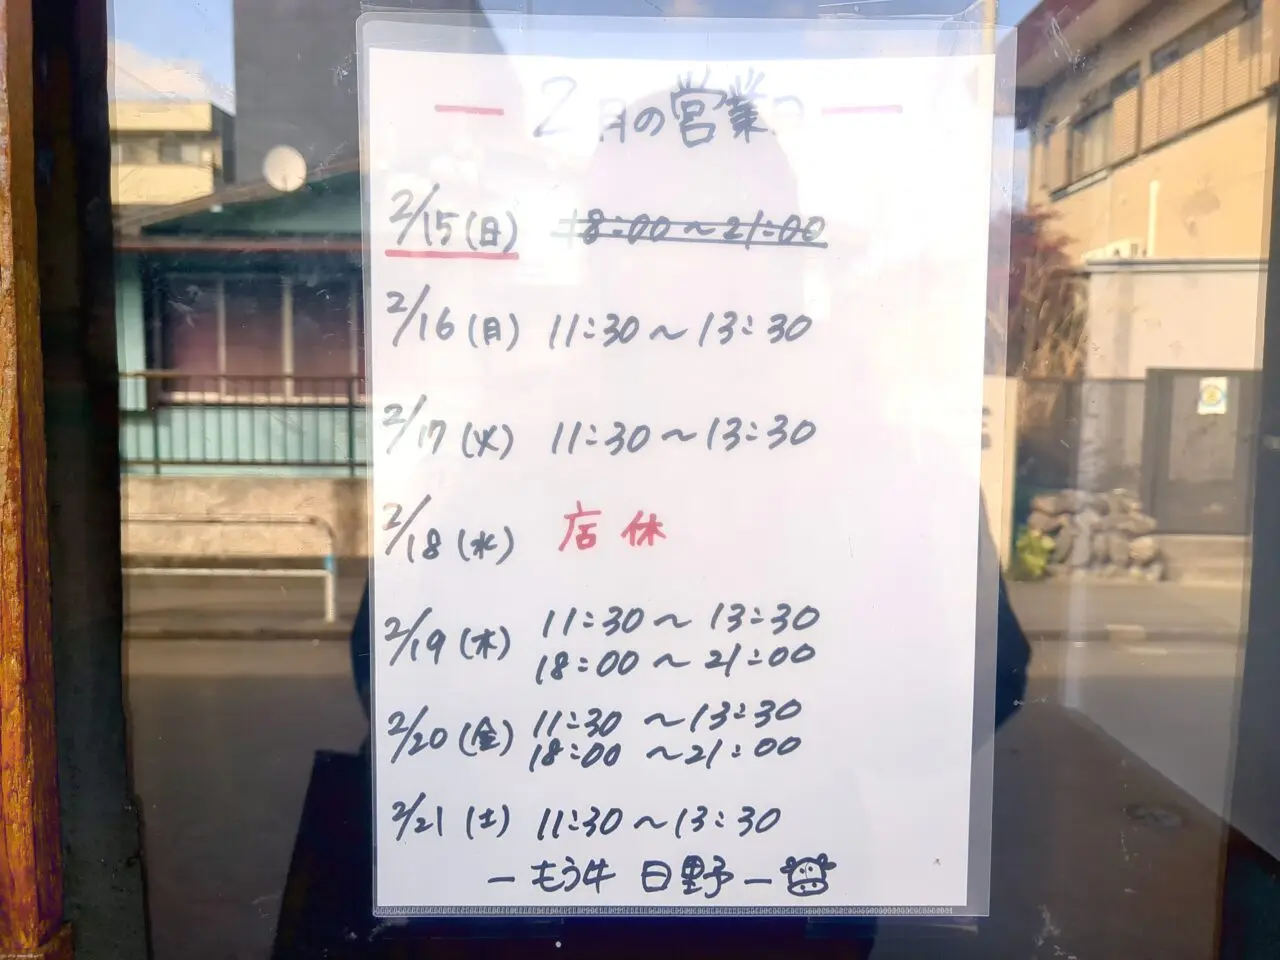 2月の営業日
2/15(日) 18:00～21:00
2/16(月) 11:30～13:30
2/17(火) 11:30～13:30
2/18(水) 店休
2/19(木) 11:30～13:30
18:00～21:00
2/20(金) 11:30～13:30
18:00～21:00
2/21(土) 11:30～13:30
ーもう牛 日野ー